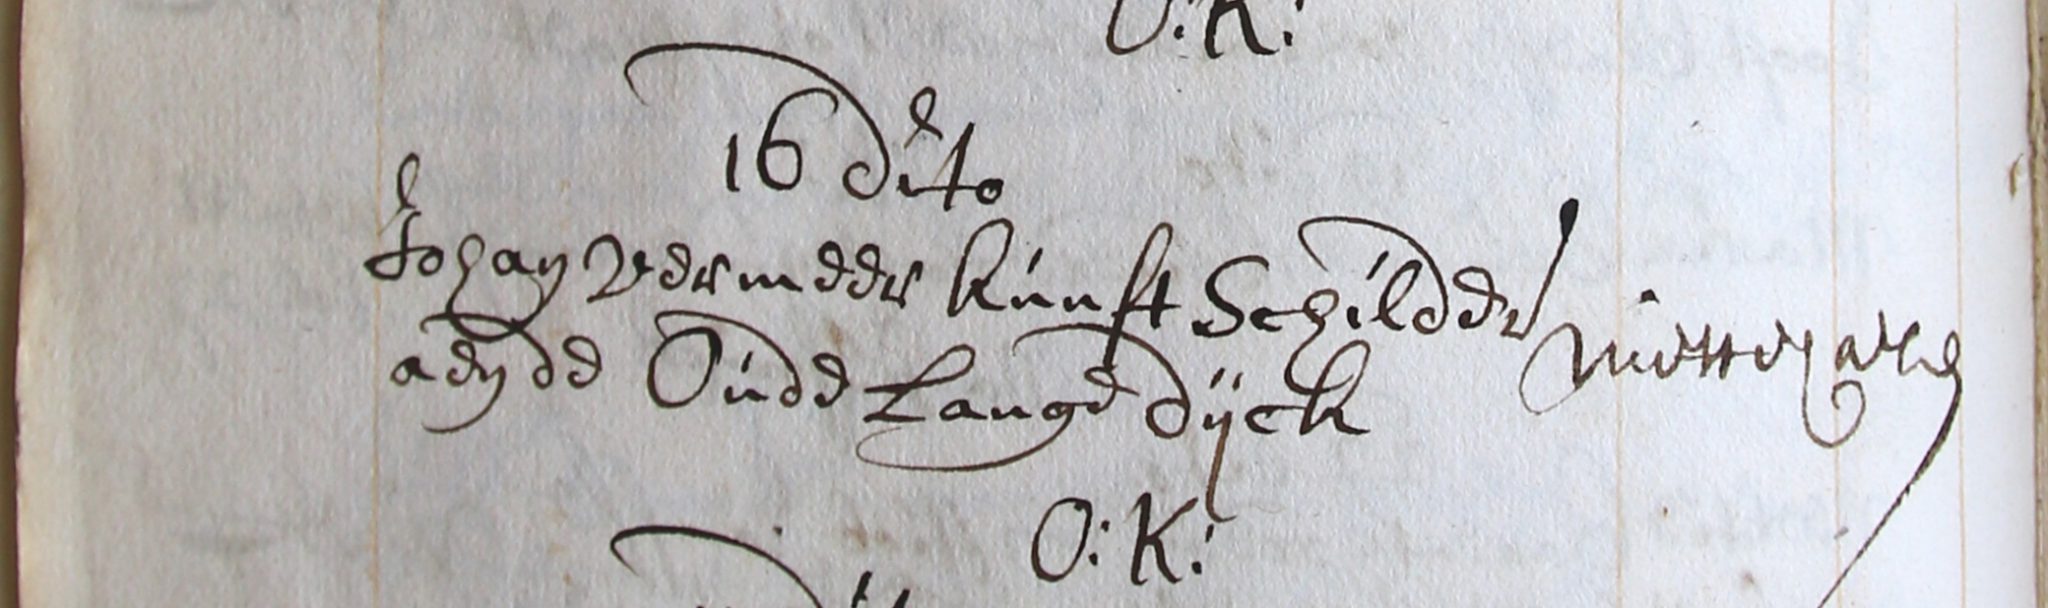 O: K:
16 dito
Johan vermeer kunst Schilder
aende Oude Langedijck niet te haele
O: K: